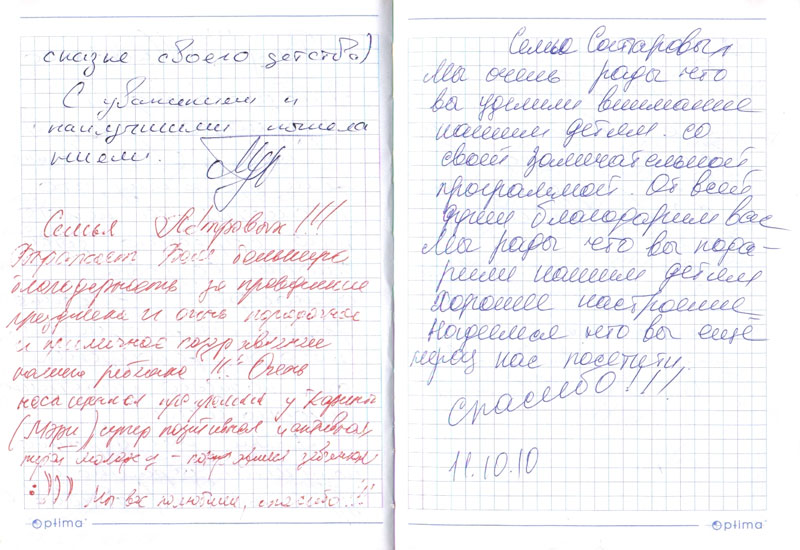 сказке своего детства)
С уважением и
наилучшими пожела
ниями.
Семья Петровых!!!
Выражает Вам большую
благодарность за проведение
праздника и очень
и приличное поздравление
нашего ребенка!!! Очень
программа у Карины
(Мэри) супер позитивная и активная,
:)))) Мы вас полюбили, спасибо!!!
Optima
Семья Сатаровых
Мы очень рады что
вы уделили внимание
нашим детям. со
своей замичательной
программой. От всей
души благодарим вас
Мы рады что вы пода-
рили нашим детям
хорошее настроение.
Надеемся что вы ещё
нас посетити.
спасибо!!!
11.10.10
Optima